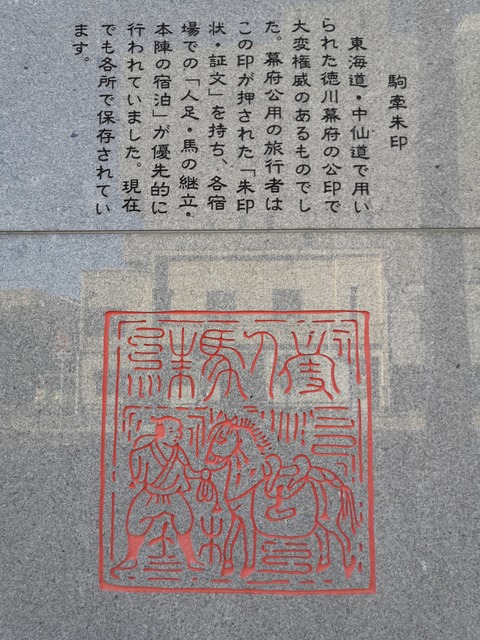 駒牽朱印
東海道・中仙道で用い
られた徳川幕府の公印で
大変権威のあるものでし
た。幕府公用の旅行者は
この印が押された「朱印
状・証文」を持ち、各宿
場での「人足・馬の継立・
本陣の宿泊」が優先的に
行われていました。現在
でも各所で保存されてい
ます。